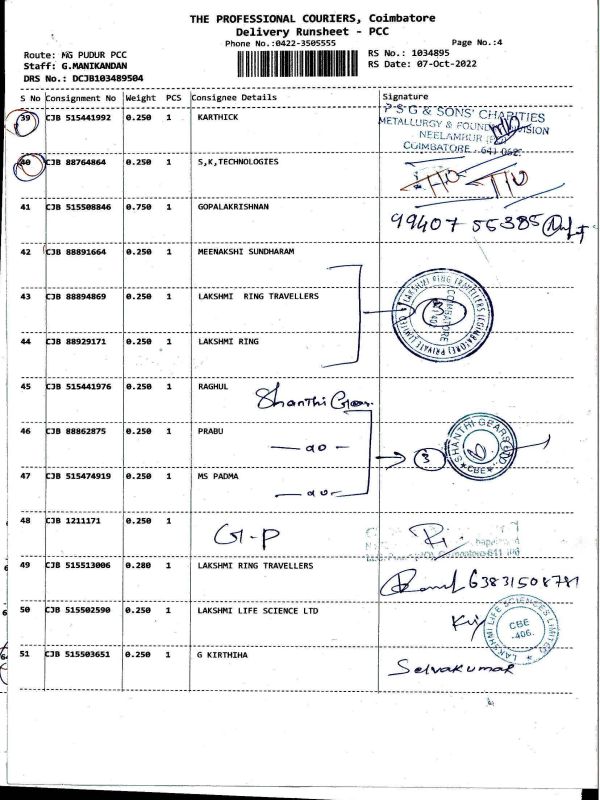 THE PROFESSIONAL COURIERS, Coimbatore
Delivery Runsheet - PCC
Phone No.:0422-3505555
Page No.:4
Route: MG PUDUR PCC
RS No.: 1034895
Staff: G.MANIKANDAN
RS Date: 07-Oct-2022
DRS No.: DCJB103489504
S No Consignment No Weight PCS Consignee Details Signature
39 CJB 515441992 0.250 1 KARTHICK
P S G & SONS' CHARITIES
METALLURGY & FOUNDRY DIVISION
NEELAMBUR
COIMBATORE - 641 062.
40 CJB 88764864 0.250 1 S,K,TECHNOLOGIES
41 CJB 515508846 0.750 1 GOPALAKRISHNAN
99407 55385
42 CJB 88891664 0.250 1 MEENAKSHI SUNDHARAM
43 CJB 88894869 0.250 1 LAKSHMI RING TRAVELLERS
3
LAKSHMI RING TRAVELLERS (COIMBATORE) PRIVATE LIMITED
COIMBATORE
44 CJB 88929171 0.250 1 LAKSHMI RING
45 CJB 515441976 0.250 1 RAGHUL
Shanthi Gears
46 CJB 88862875 0.250 1 PRABU
- do -
3
SHANTHI GEARS
CBE
47 CJB 515474919 0.250 1 MS PADMA
- do -
48 CJB 1211171 0.250 1
G-P
49 CJB 515513006 0.280 1 LAKSHMI RING TRAVELLERS
63831508781
50 CJB 515502590 0.250 1 LAKSHMI LIFE SCIENCE LTD
LAKSHMI LIFE SCIENCES LIMITED
CBE
-406.
51 CJB 515503651 0.250 1 G KIRTHIHA
Selvakumar